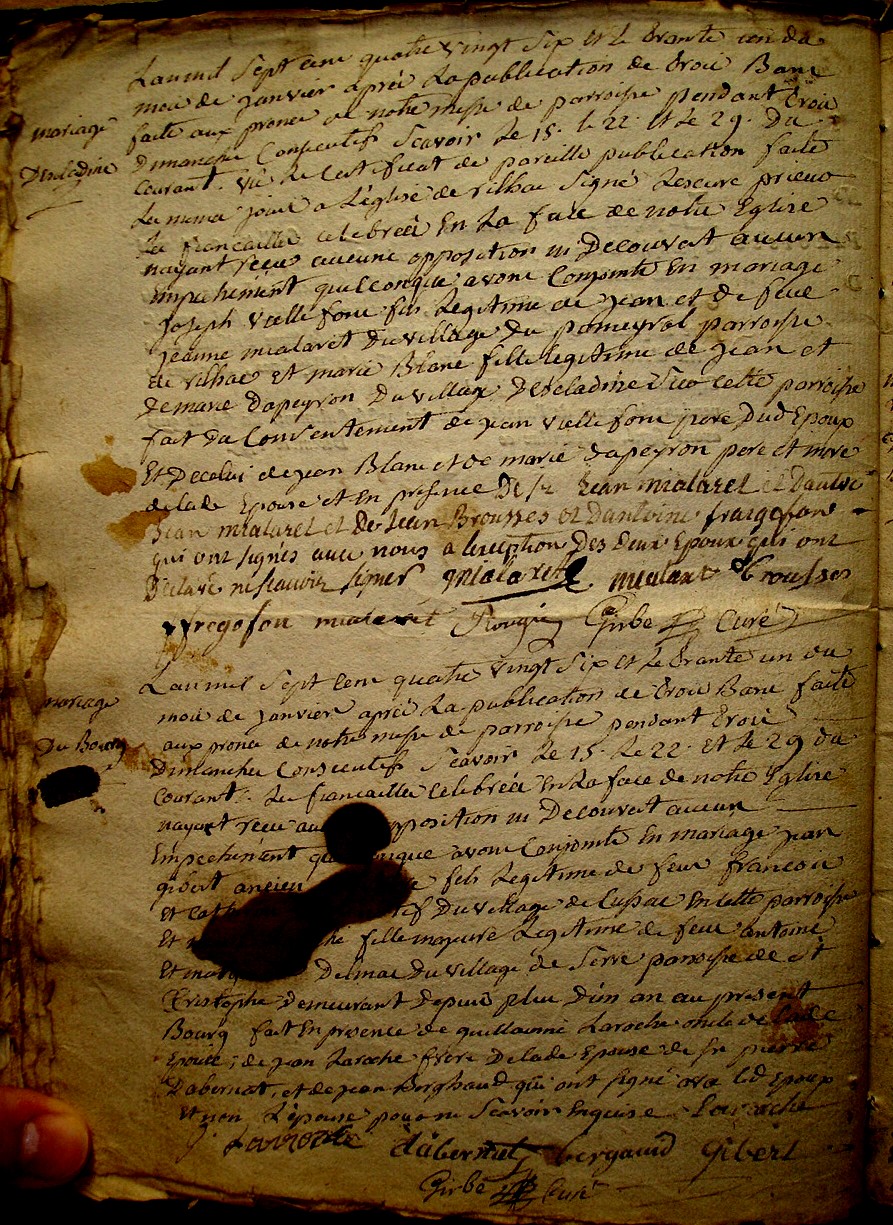 Lan mil Sept cent quatre vingt Six et Le trante un du
mois de janvier aprés La publication de trois Bans
mariage
faite aux prones de notre messe de parroisse pendant trois
Dimanches Consecutifs Scavoir Le 15. le 22. et Le 29. Du
Descladine
courant. vu Le Certificat de pareille publication faite
Les memes jours a Léglise de vilhac Signé Lescure prieur
Les fiancailles celebreés En La face de notre Eglise
nayant recu aucune opposition ni Decouvert aucun
Empechement quelconque avons Conjoints En mariage
joseph vielle fons fils Legitime de jean et de feue
jeanne mialaret Du village Du pomeyrol parroisse
de vilhac et marie Blanc fille legitime de jean et
Demarie Dapeyron Du village Descladine Sur cette parroisse
fait du Consentement de jean vielle fons pere Dud Epoux
Et Decelui de jean Blanc et de marie dapeyron pere et mere
delade Epouse et En presence De jean mialaret et Dautre
jean mialaret et De jean Brousses et Dantoine fraegefon
qui ont signés avec nous a lexception Des deux Epoux qui ont
Déclaré ne scavoir signer mialaret mialaret Brousses
ffregofon mialaret Rougie Girbe Curé
mariage
Lan mil Sept cent quatre vingt Six et Le trante un du
mois de janvier aprés La publication de trois Bans faite
Du Bourg
aux prones de notre messe de parroisse pendant trois
Dimanches Consecutifs Scavoir Le 15. Le 22. et Le 29 du
Courant. Les fiancailles Celebreés En La face de notre Eglise
nayant recu opposition ni Decouvert aucun
Empechement avons Conjoints En mariage jean
gibert ancien fils Legitime de feu francois
Et Du village de Cussac En cette parroisse
Et fille majeure Legitime de feu antoine
Et Delmas Du village de Serre parroisse de St
Cristophe Demeurant Depuis plus Dun an au present
Bourg fait En presence de guillaume Laroche oncle de lade
Epouse, de jean Laroche frere Delade Epouse de Sr pierre
Dabernat, et de jean Berghaud qui ont signé avec led Epoux
et non L'épouse pour ne Scavoir Enquise Laroche
j. Larroche dabernat bergaud gibert
Girbe Curé